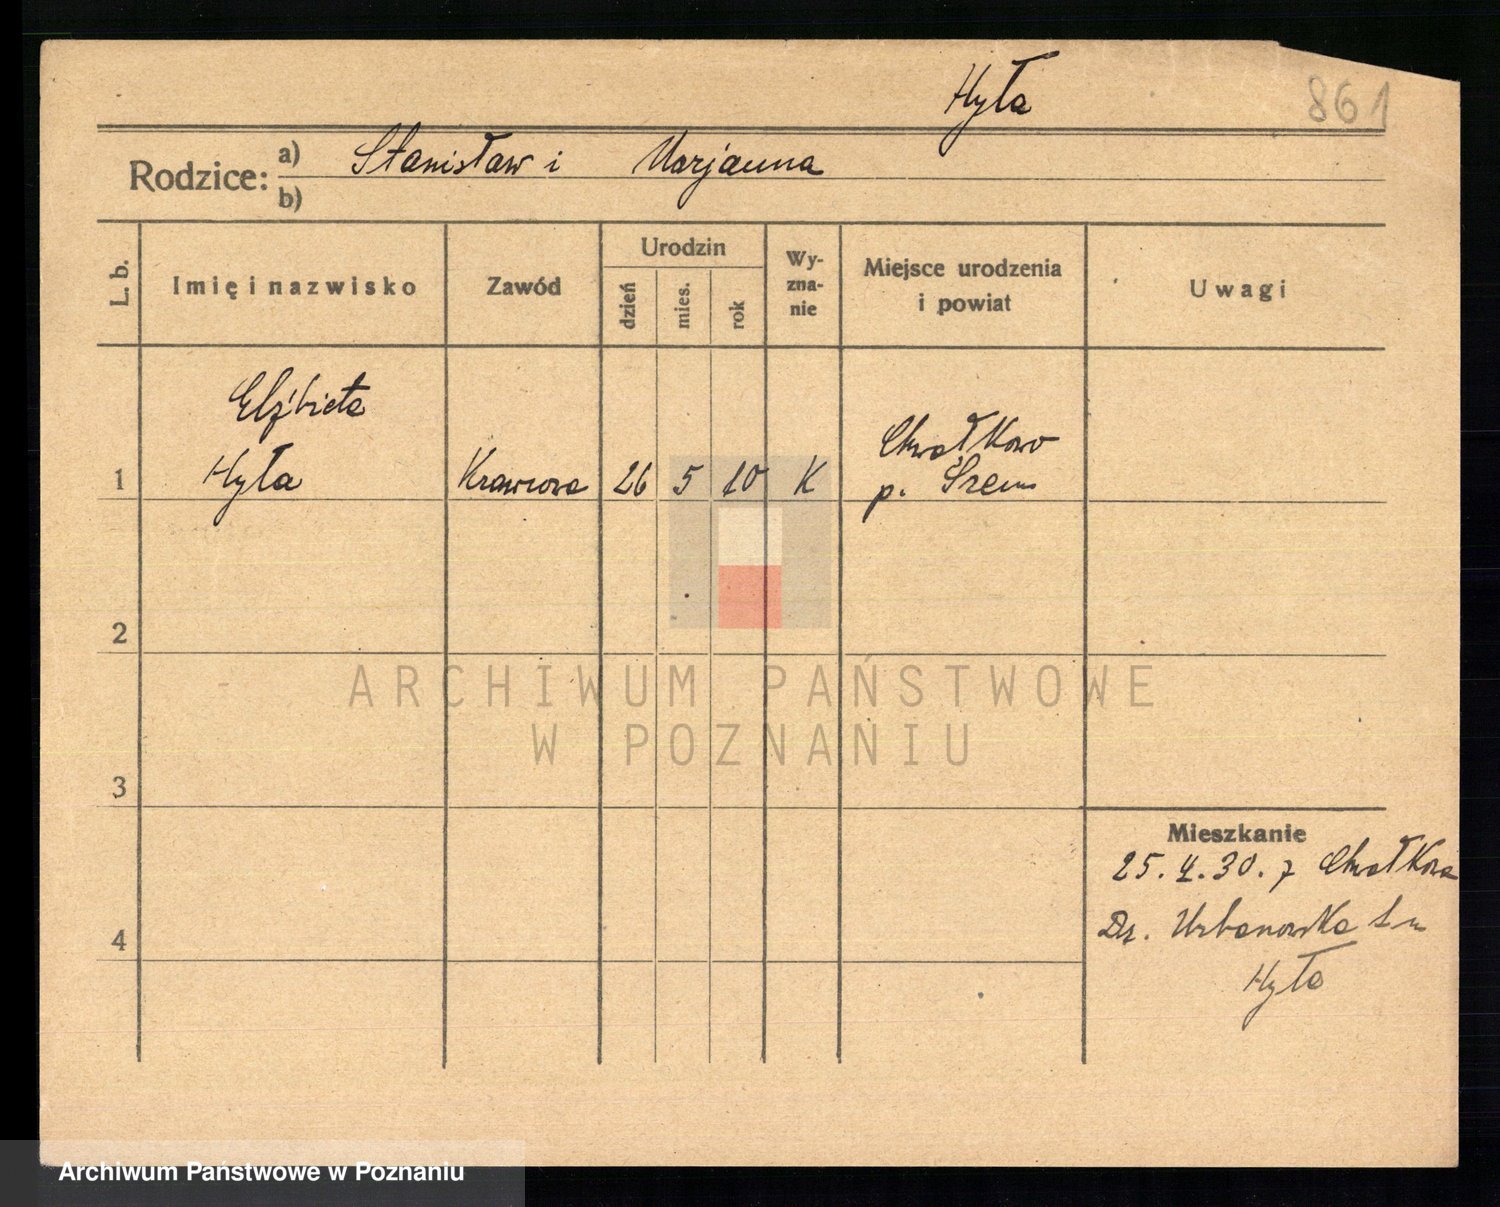 Hyła
861
Rodzice: a) Stanisław i Marjanna
b)
L. b.
Imię i nazwisko
Zawód
Urodzin
dzień
mies.
rok
Wy-
zna-
nie
Miejsce urodzenia
i powiat
Uwagi
Elżbieta
1 Hyła
Krawcowa
26 5 10 K
Chwałkowo
p. Śrem
2
3
4
Mieszkanie
25. 4. 30. z Chwałkowa
Urbanowska
Hyła
ARCHIWUM PAŃSTWOWE
W POZNANIU
Archiwum Państwowe w Poznaniu